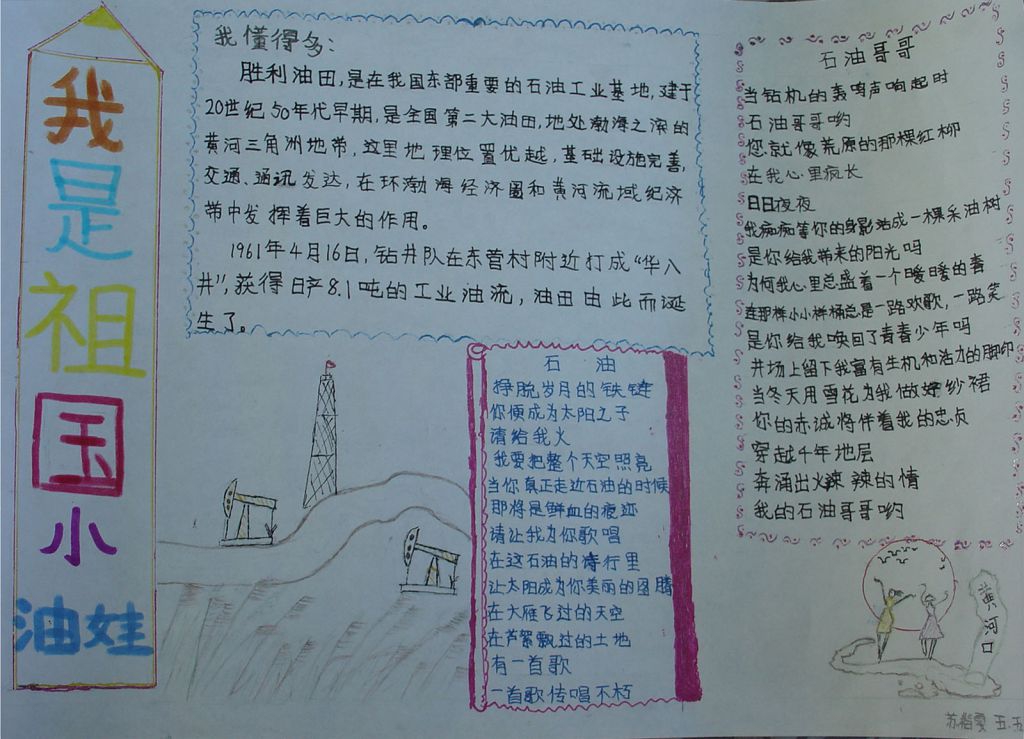 我是祖国小油娃
我懂得多：
胜利油田，是在我国东部重要的石油工业基地，建于
20世纪50年代早期，是全国第二大油田，地处渤海之滨的
黄河三角洲地带，这里地理位置优越，基础设施完善，
交通、通讯发达，在环渤海经济圈和黄河流域经济
带中发挥着巨大的作用。
1961年4月16日，钻井队在东营村附近打成“华八
井”，获得日产8.1吨的工业油流，油田由此而诞
生了。
石油
挣脱岁月的铁链
你便成为太阳之子
请给我火
我要把整个天空照亮
当你真正走近石油的时候
那将是鲜血的痕迹
请让我为你歌唱
在这石油的诗行里
让太阳成为你美丽的图腾
在大雁飞过的天空
在芦絮飘过的土地
有一首歌
一首歌传唱不朽
石油哥哥
当钻机的轰鸣声响起时
石油哥哥哟
您就像荒原的那棵红柳
在我心里疯长
日日夜夜
我痴痴等你的身影站成一棵采油树
是你给我带来的阳光吗
为何我心里总盛着一个暖暖的春
连那样小小样桶总是一路欢歌，一路笑
是你给我唤回了青青少年吗
井场上留下我富有生机和活力的脚印
当冬天用雪花为我做婚纱裙
你的赤诚将伴着我的忠贞
穿越千年地层
奔涌出火辣辣的情
我的石油哥哥哟
黄河口
五.五